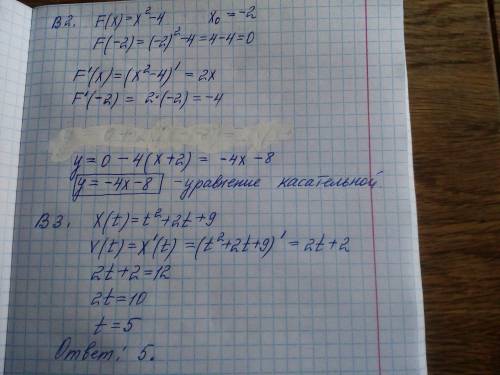 В2. F(x)=x²-4 x₀=-2
F(-2)=(-2)²-4=4-4=0
F'(x)=(x²-4)'=2x
F'(-2)= 2·(-2)=-4
y=0-4(x+2)= -4x-8
y=-4x-8 -уравнение касательной
В3. X(t)=t²+2t+9
V(t)=X'(t)=(t²+2t+9)'=2t+2
2t+2=12
2t=10
t=5
Ответ: 5.